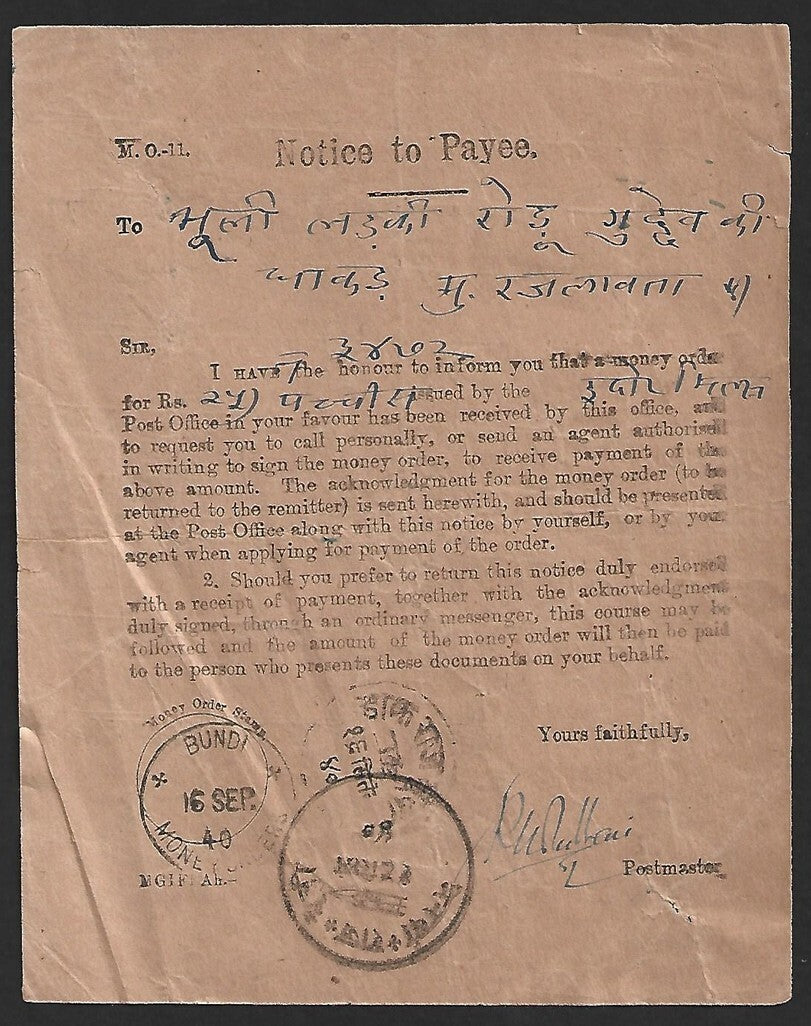 M. O.-11.
Notice to Payee.
To भूली लड़की रोडू गुद्देव की
धाकड़ मु. रजलावता
SIR, ३४७२
I HAVE the honour to inform you that a money order
for Rs. २५) पच्चीस issued by the इन्दोर मिल्स
Post Office in your favour has been received by this office, and
to request you to call personally, or send an agent authorised
in writing to sign the money order, to receive payment of the
above amount. The acknowledgment for the money order (to be
returned to the remitter) is sent herewith, and should be presented
at the Post Office along with this notice by yourself, or by your
agent when applying for payment of the order.
2. Should you prefer to return this notice duly endorsed
with a receipt of payment, together with the acknowledgment
duly signed, through an ordinary messenger, this course may be
followed and the amount of the money order will then be paid
to the person who presents these documents on your behalf.
Yours faithfully,
Money Order Stamp
BUNDI
16 SEP.
40
MONEY ORDERS
Postmaster